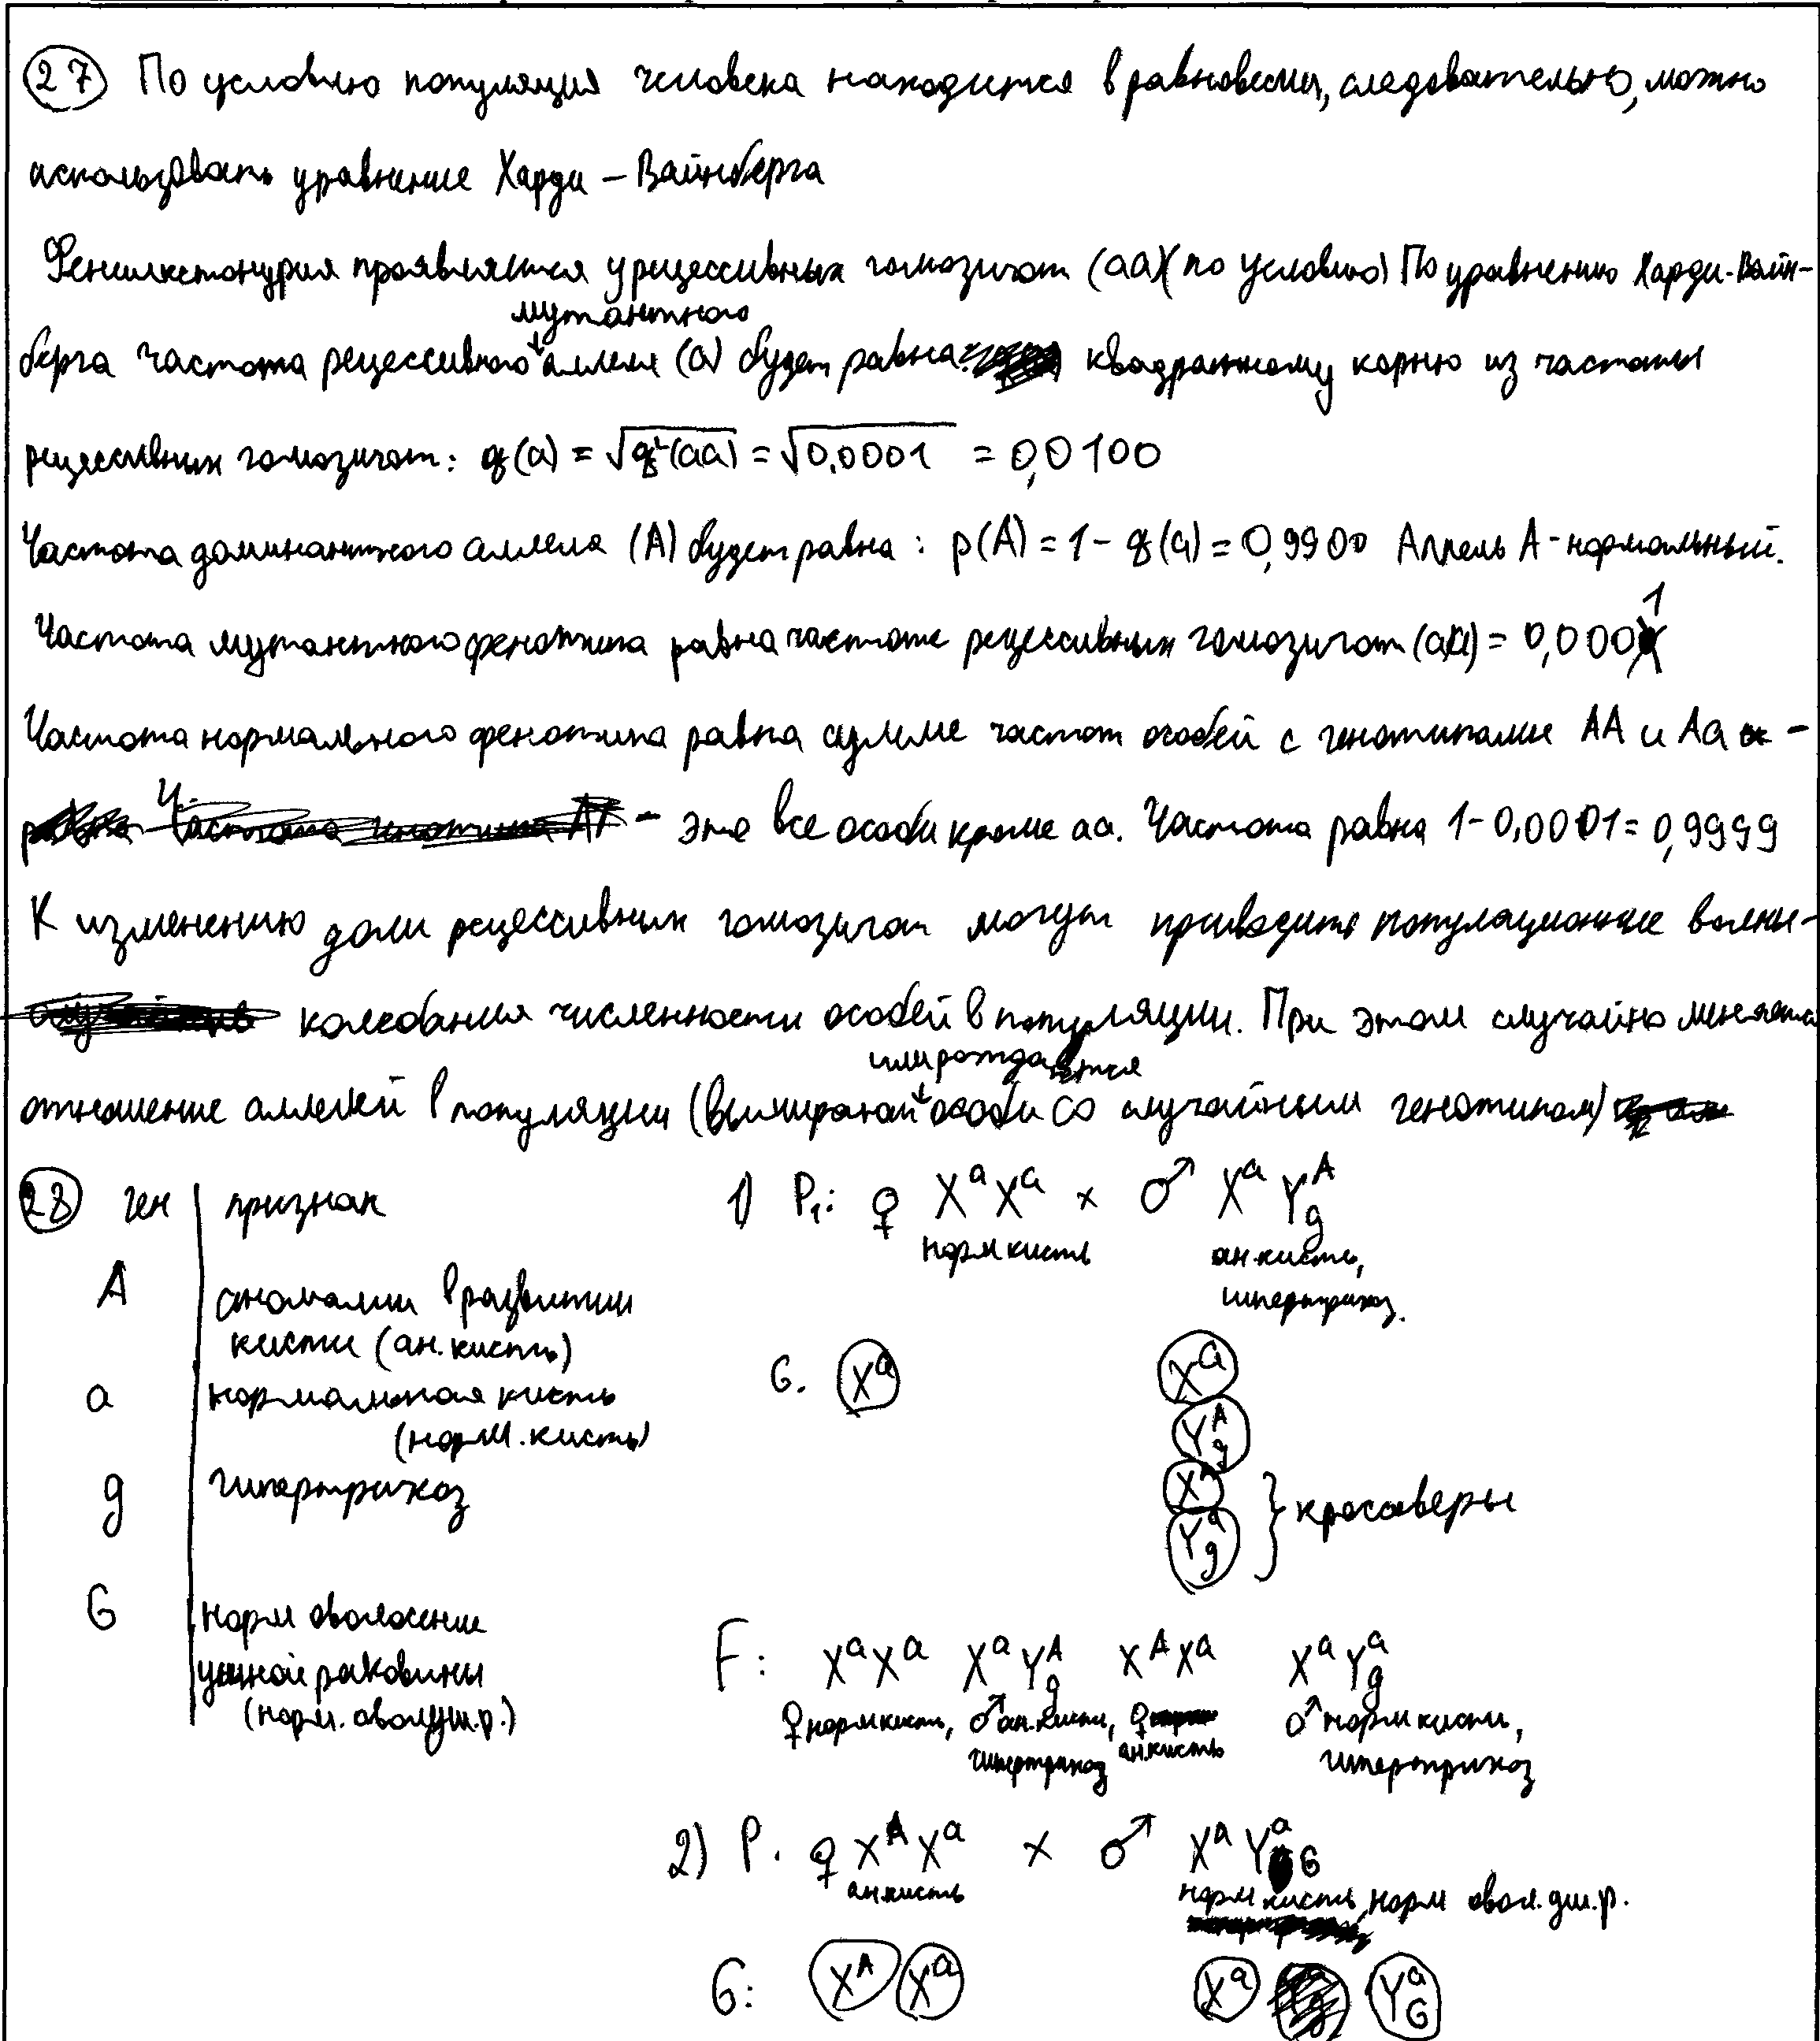 27 По условию популяция человека находится в равновесии, следовательно, можно
использовать уравнение Харди – Вайнберга
Фенилкетонурия проявляется у рецессивных гомозигот (аа)(по условию) По уравнению Харди-Вайн-
мутантного
берга частота рецессивного аллеля (а) будет равна квадратному корню из частоты
рецессивных гомозигот: q(a) = √q²(aa) = √0,0001 = 0,0100
Частота доминантного аллеля (А) будет равна: p(A) = 1 - q(a) = 0,9900 Аллель А - нормальный.
Частота мутантного фенотипа равна частоте рецессивных гомозигот (аа) = 0,0001
Частота нормального фенотипа равна сумме частот особей с генотипами АА и Аа -
- это все особи кроме аа. Частота равна 1-0,0001=0,9999
К изменению доли рецессивных гомозигот могут приводить популяционные волны -
колебания численности особей в популяции. При этом случайно меняется
или рождаются
отношение аллелей в популяции (вымирают особи со случайным генотипом)
28 ген признак
A аномалии в развитии
кисти (ан. кисть)
a нормальная кисть
(норм. кисть)
g гипертрихоз
G норм оволосение
ушной раковины
(норм. овол. уш. р.)
1) P₁: ♀ XᵃXᵃ × ♂ XᵃYᴬg
норм кисть ан. кисть,
гипертрихоз.
G. Xᵃ Xᵃ
Yᴬg
Xᴬ
Yᵃg } кроссоверы
F: XᵃXᵃ XᵃYᴬg XᴬXᵃ XᵃYᵃg
♀ норм кисть, ♂ ан. кисть, ♀ ♂ норм кисть,
гипертрихоз ан кисть гипертрихоз
2) P. ♀ XᴬXᵃ × ♂ XᵃYᵃG
ан кисть норм кисть, норм овол. уш. р.
G: Xᴬ Xᵃ Xᵃ YᵃG